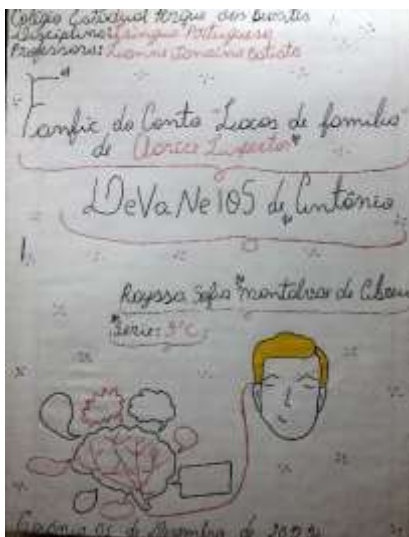 Colégio Estadual Parque dos Buritis
Disciplina: Língua Portuguesa
Professora:
Fanfic do Conto "Laços de família"
de Clarice Lispector
DeVaNeIOS de Antônio
Rayssa Sofia Montalvão de
Série: 3°C
05 de Dezembro de